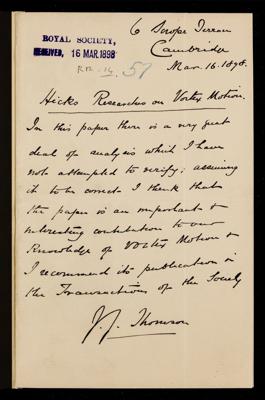 6 Scrope Terrace
Cambridge
Mar. 16. 1898.
ROYAL SOCIETY,
RECEIVED, 16 MAR. 1898
57
Hicks Researches on Vortex Motion.
In this paper there is a very great
deal of analysis which I have
not attempted to verify; assuming
it to be correct I think that
the paper is an important &
interesting contribution to our
knowledge of Vortex Motion &
I recommend its publication in
the Transactions of the Society
J. J. Thomson